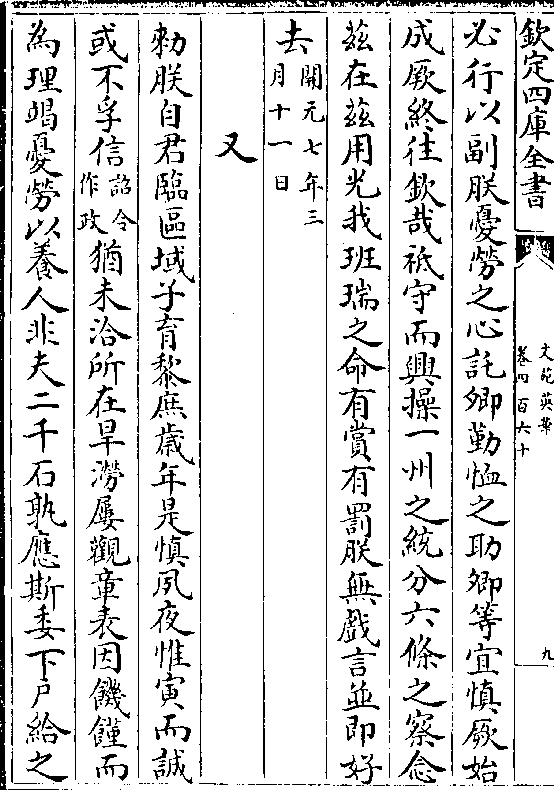 欽定四庫全書
文苑英華
卷四百六十
九
必行以副朕憂勞之心託卿勤恤之助卿等宜慎厥始
成厥終往欽哉祗守而興操一州之統分六條之察念
茲在茲用光我班瑞之命有賞有罰朕無戲言並即好
去開元七年三
月十一日
又
勑朕自君臨區域子育黎庶歲年是慎夙夜惟寅而誠
或不孚信詔令
作政猶未洽所在旱澇屢觀章表因饑饉而
為理竭憂勞以養人非夫二千石孰應斯委下戸給之